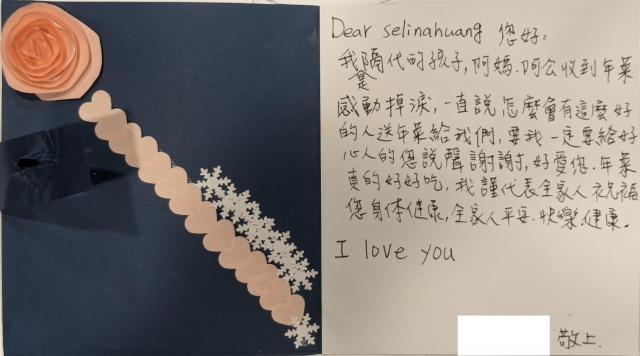 Dear selinahuang 您好:
我是隔代的孩子,阿媽.阿公收到年菜
感動掉淚,一直說怎麼會有這麼好
的人送年菜給我們,要我一定要給好
心人的您說聲謝謝,好愛您.年菜
真的好好吃,我謹代表全家人祝福
您身体健康,全家人平安.快樂.健康.
I love you
敬上.